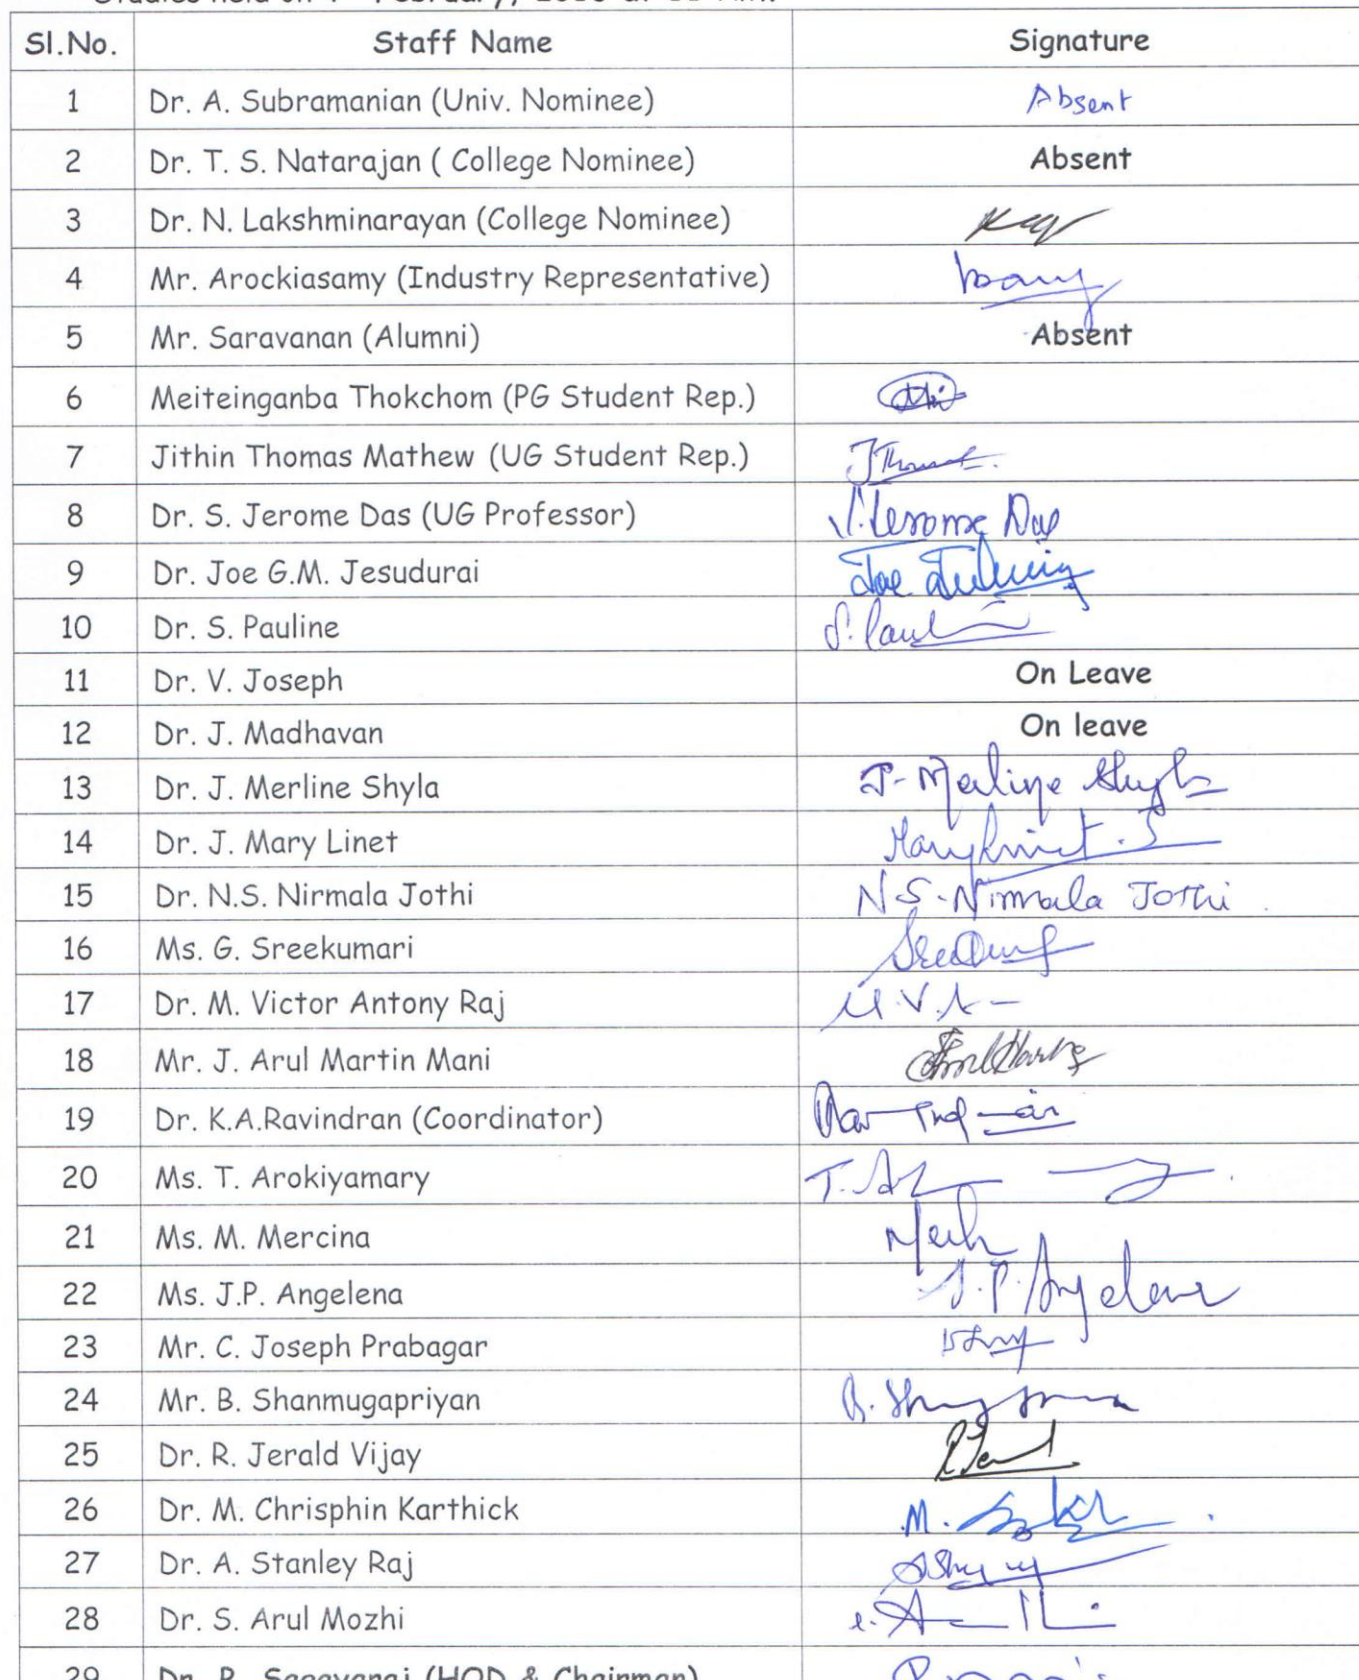 Sl.No. Staff Name Signature
1 Dr. A. Subramanian (Univ. Nominee) Absent
2 Dr. T. S. Natarajan ( College Nominee) Absent
3 Dr. N. Lakshminarayan (College Nominee)
4 Mr. Arockiasamy (Industry Representative)
5 Mr. Saravanan (Alumni) Absent
6 Meiteinganba Thokchom (PG Student Rep.)
7 Jithin Thomas Mathew (UG Student Rep.)
8 Dr. S. Jerome Das (UG Professor) S. Jerome Das
9 Dr. Joe G.M. Jesudurai
10 Dr. S. Pauline
11 Dr. V. Joseph On Leave
12 Dr. J. Madhavan On leave
13 Dr. J. Merline Shyla J. Merline Shyla
14 Dr. J. Mary Linet
15 Dr. N.S. Nirmala Jothi N.S. Nirmala Jothi
16 Ms. G. Sreekumari
17 Dr. M. Victor Antony Raj
18 Mr. J. Arul Martin Mani
19 Dr. K.A.Ravindran (Coordinator)
20 Ms. T. Arokiyamary
21 Ms. M. Mercina
22 Ms. J.P. Angelena J.P. Angelena
23 Mr. C. Joseph Prabagar
24 Mr. B. Shanmugapriyan
25 Dr. R. Jerald Vijay
26 Dr. M. Chrisphin Karthick
27 Dr. A. Stanley Raj
28 Dr. S. Arul Mozhi
29 (HOD & Chairman)